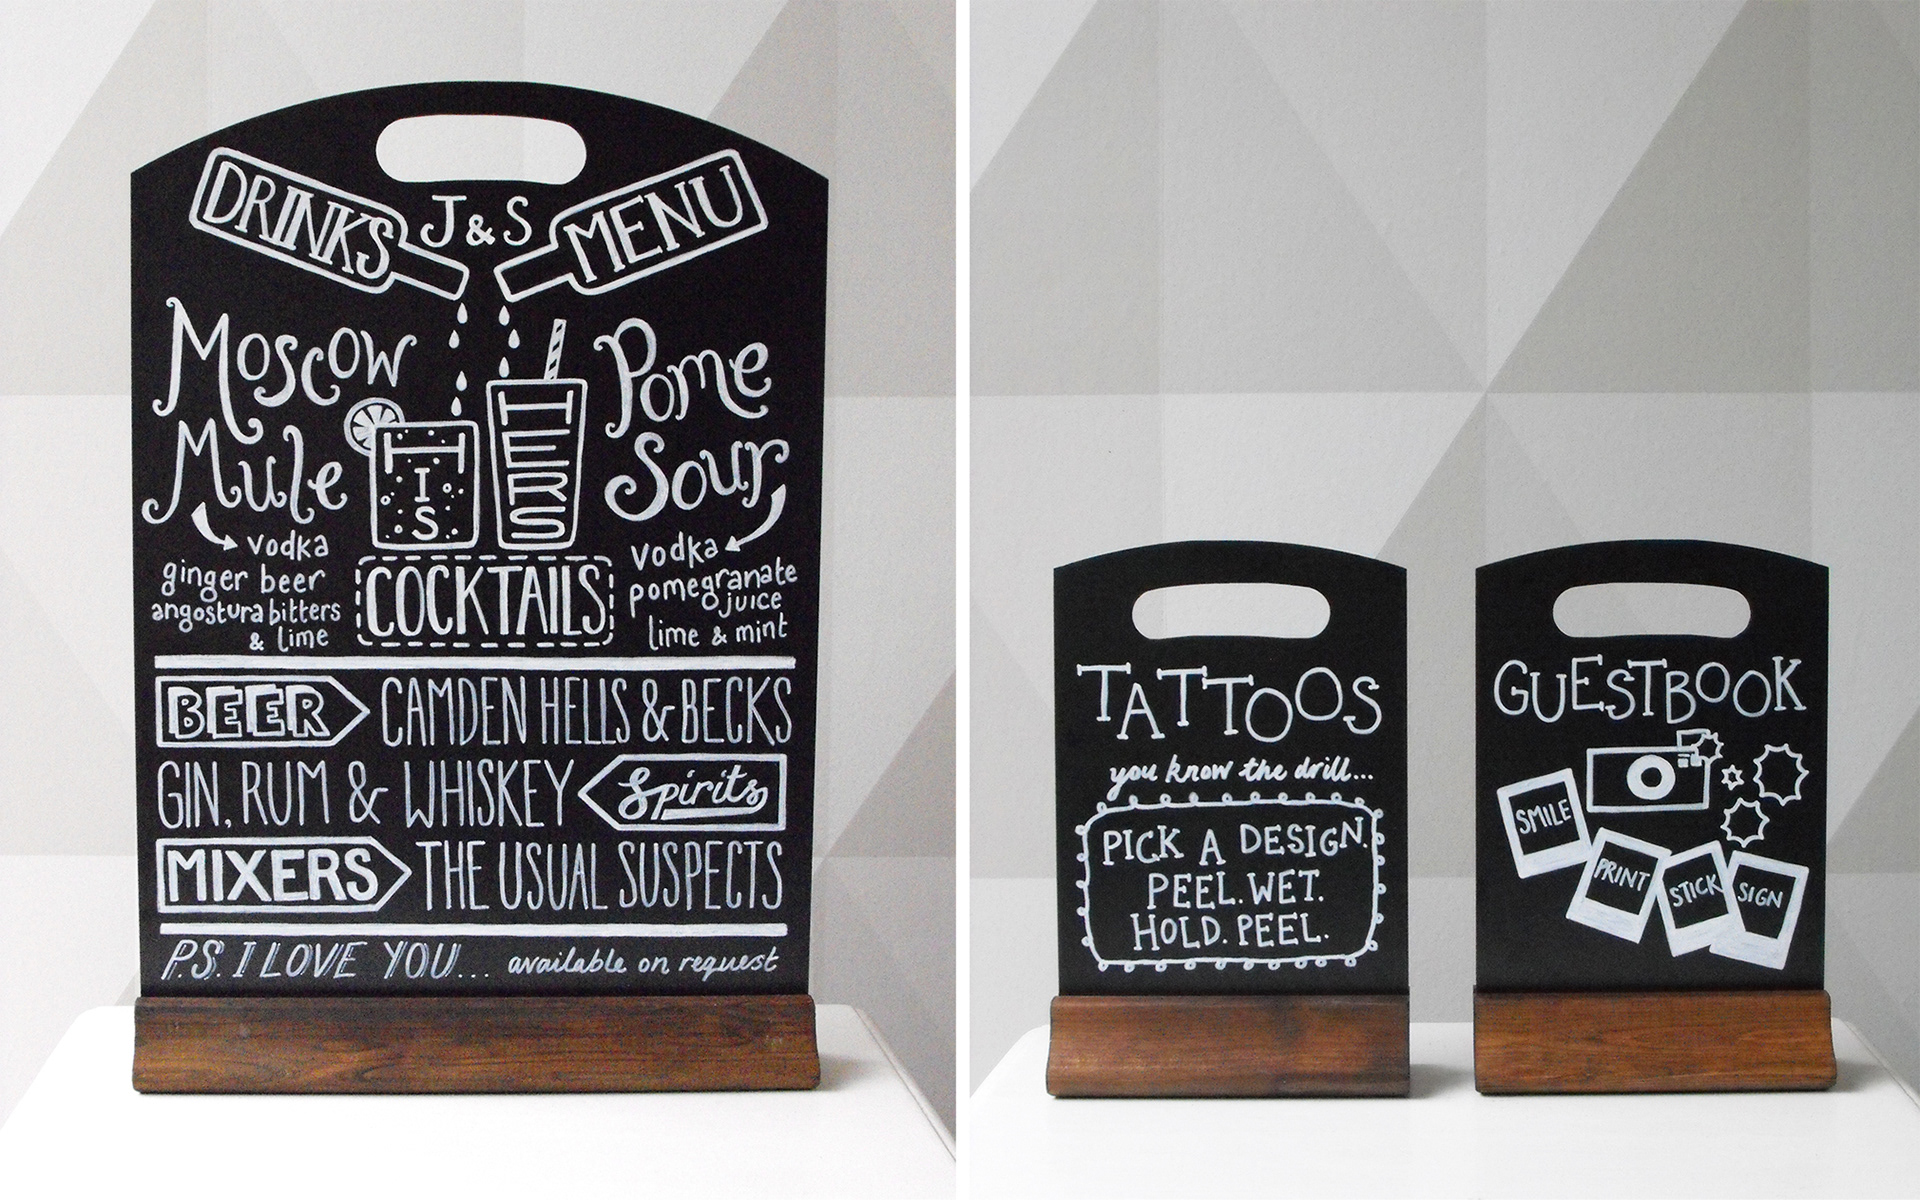 DRINKS J&S MENU
Moscow
Mule
vodka
ginger beer
angostura bitters
& lime
HIS
HERS
COCKTAILS
Pome
Sour
vodka
pomegranate
juice
lime & mint
BEER CAMDEN HELLS & BECKS
GIN, RUM & WHISKEY Spirits
MIXERS THE USUAL SUSPECTS
P.S. I LOVE YOU... available on request
TATTOOS
you know the drill...
PICK A DESIGN.
PEEL. WET.
HOLD. PEEL.
GUESTBOOK
SMILE
PRINT
STICK
SIGN